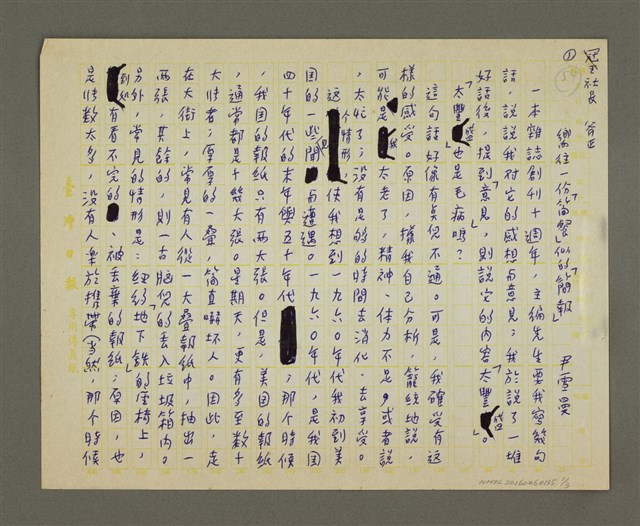 ① 冠至社長 谷正
嚮往一份「简餐」似的「簡報」 尹雪曼
一本雜誌創刊十週年,主編先生要我寫幾句
話,說說我對它的感想與意見;我於說了一堆
好話後,提到「意見」,則說它的內容「太豐盛」。
太「豐盛」也是毛病嗎?
這句話好像有點兒不通。可是,我確是有這
樣的感受。原因,據我自己分析,籠統地說,
可能是我太老了,精神、體力不足,或者說
,太忙了;沒有足夠的時間去消化、去享受。
這個情形,使我想到一九六○年代我初到美
國的一些聞見與遭遇。一九六○年代,是我國
四十年代的末年與五十年代,那個時候
,我國的報紙只有兩大張。但是,美國的報紙
,通常都是十幾大張。星期天,更有多至數十
大張者;厚厚的一疊,简直嚇坏人。因此,走
在大街上,常見有人從一大疊報紙中,抽出一
兩張,其餘的,則一古腦兒的丢入垃圾箱內。
另外,常見的情形是:紐約「地下鐵」的座椅上,
到處有看不完的、被丢棄的報紙;原因,也
是張數太多,沒有人樂於携帶(當然,那個時候
臺灣日報
NMTL20160060135 1/3